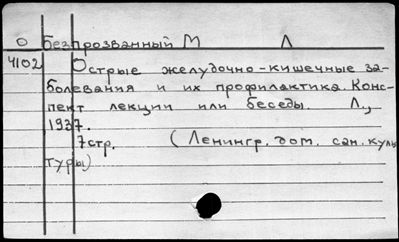 О Безпрозванный М Л
4102 Острые желудочно-кишечные за-
болевания и их профилактика. Конс-
пект лекции или беседы. Л.,
1937.
7 стр. (Ленингр. дом. сан. куль
туры)